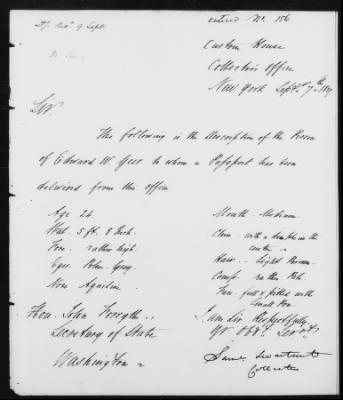 entered No. 156
Custom House
Collectors Office
New York Septr 7th
Sir
The following is the Description of the Person
of Edward W. Geer to whom a Passport has been
delivered from this office
Age 24.
Stat. 5 ft. 8 Inch.
For. rather high.
Eyes
Nose Aquiline
Mouth. Medium.
Chin with a dimple in the
centre.
Hair. Light Brown.
Comp. rather Pale.
Face. full & pitted with
Small Pox.
Hon. John Forsyth
Secretary of State
Washington
I am Sir Respectfully
Yr Obdt. Servt.
Saml Swartwout
Collector